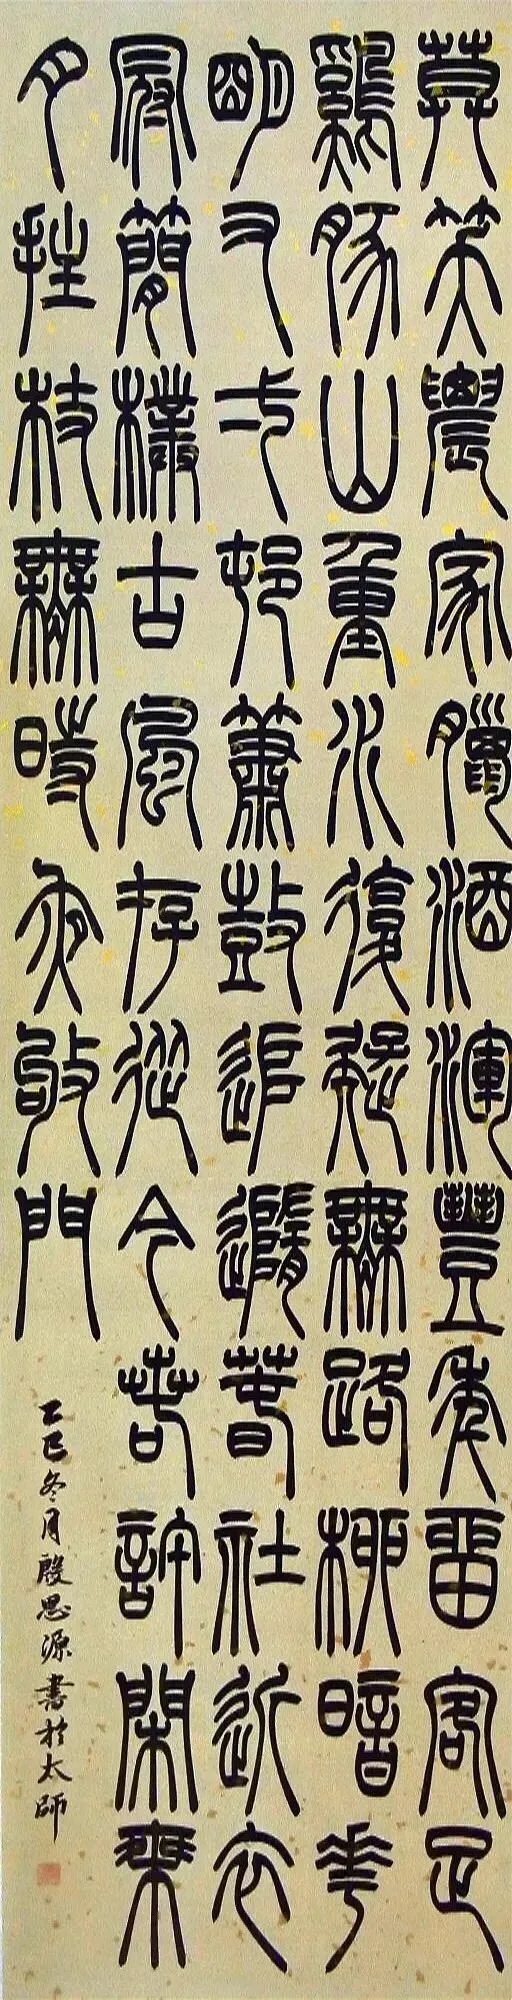 莫笑農家臘酒渾豐年留客足
雞豚山重水復疑無路柳暗花
明又弌邨簫鼓追隨春社近衣
冠簡樸古風存從今若許閑乘
月拄杖無時夜敂門
乙巳冬月殷思源書於太師